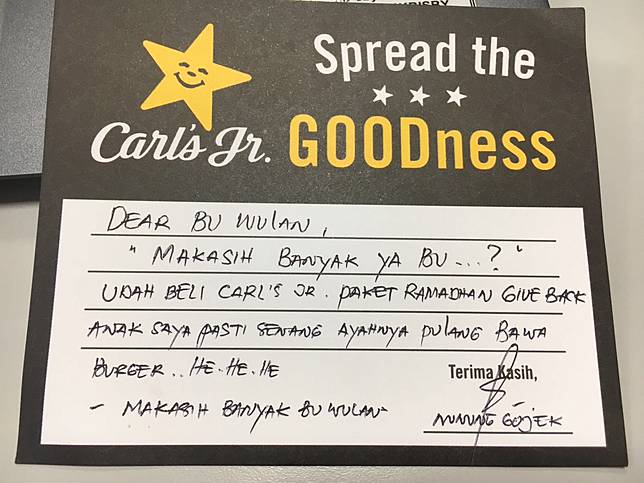 Carl's Jr.
Spread the
GOODness
DEAR BU WULAN,
" MAKASIH BANYAK YA BU...? "
UDAH BELI CARL'S JR. PAKET RAMADHAN GIVE BACK
ANAK SAYA PASTI SENANG AYAHNYA PULANG BAWA
BURGER.. HE.HE.HE
Terima Kasih,
- MAKASIH BANYAK BU WULAN-
GOJEK